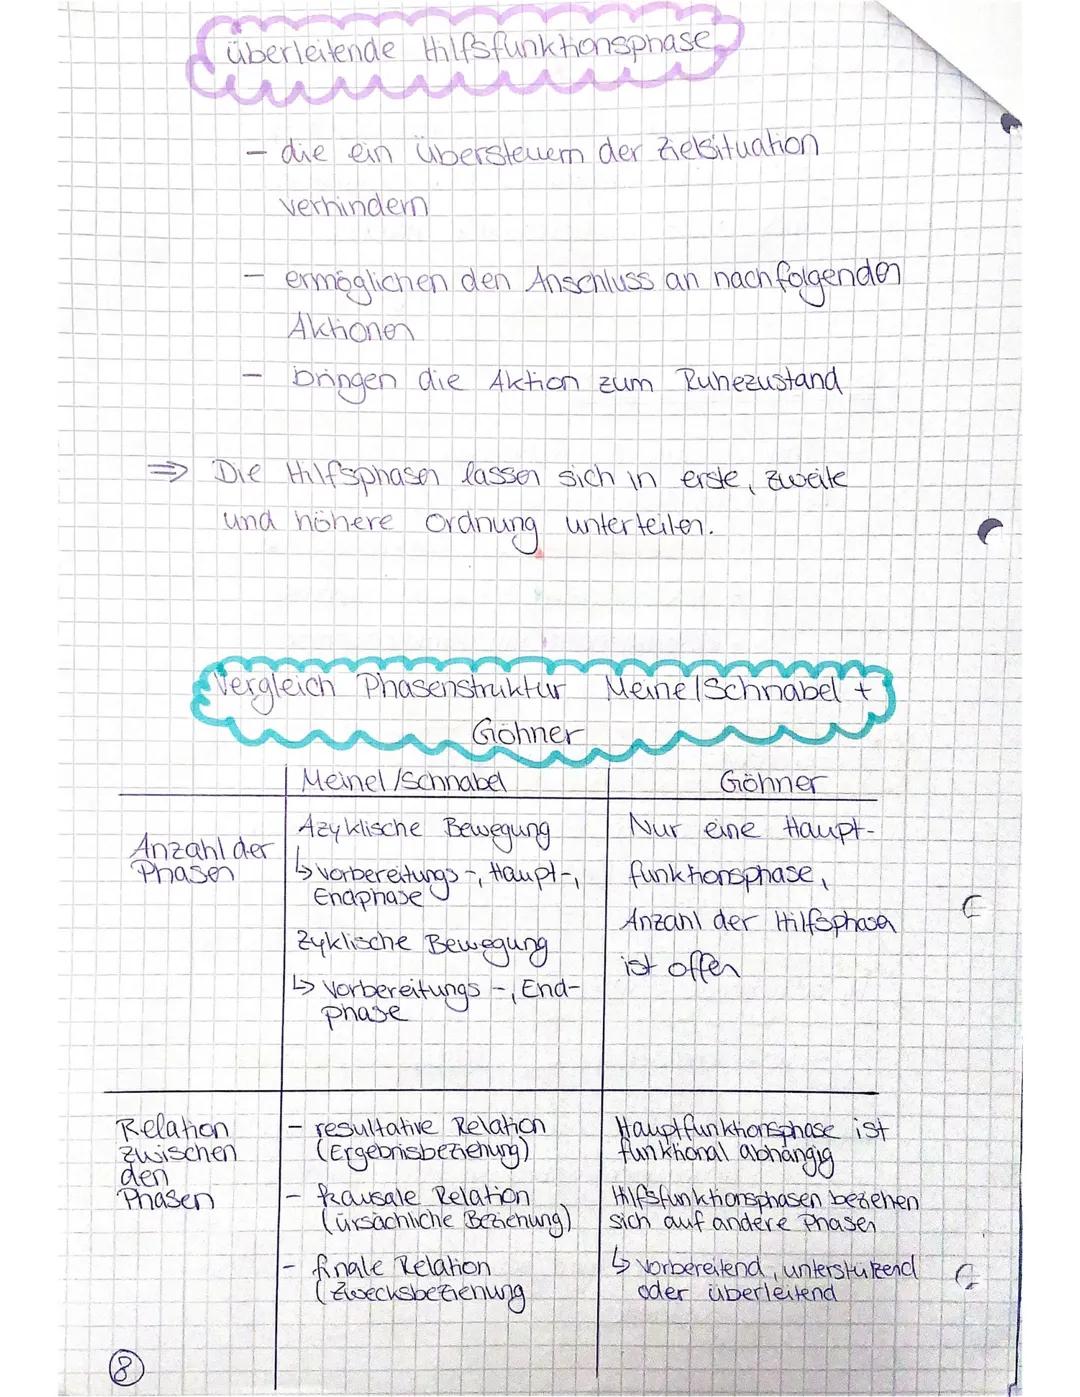 überleitende Hilfsfunktionsphase
- die ein Übersteuern der Zielsituation
verhindern
- ermöglichen den Anschluss an nachfolgenden
Aktionen
- bringen die Aktion zum Ruhezustand
⇒ Die Hilfsphasen lassen sich in erste, zweite
und höhere Ordnung unterteilen.
Vergleich Phasenstruktur Meinel/Schnabel +
Göhner
Meinel/Schnabel
Göhner
Anzahl der
Phasen
Azyklische Bewegung
↳ Vorbereitungs-, Haupt-,
Endphase
Zyklische Bewegung
↳ Vorbereitungs-, End-
phase
Nur eine Haupt-
funktionsphase,
Anzahl der Hilfsphasen
ist offen
Relation
zwischen
den
Phasen
- resultative Relation
(Ergebnisbeziehung)
- kausale Relation
(ürsächliche Beziehung)
- finale Relation
(Zwecksbeziehung
Hauptfunktionsphase ist
funktional abhängig
Hilfsfunktionsphasen beziehen
sich auf andere Phasen
↳ vorbereitend, unterstützend
oder überleitend
8